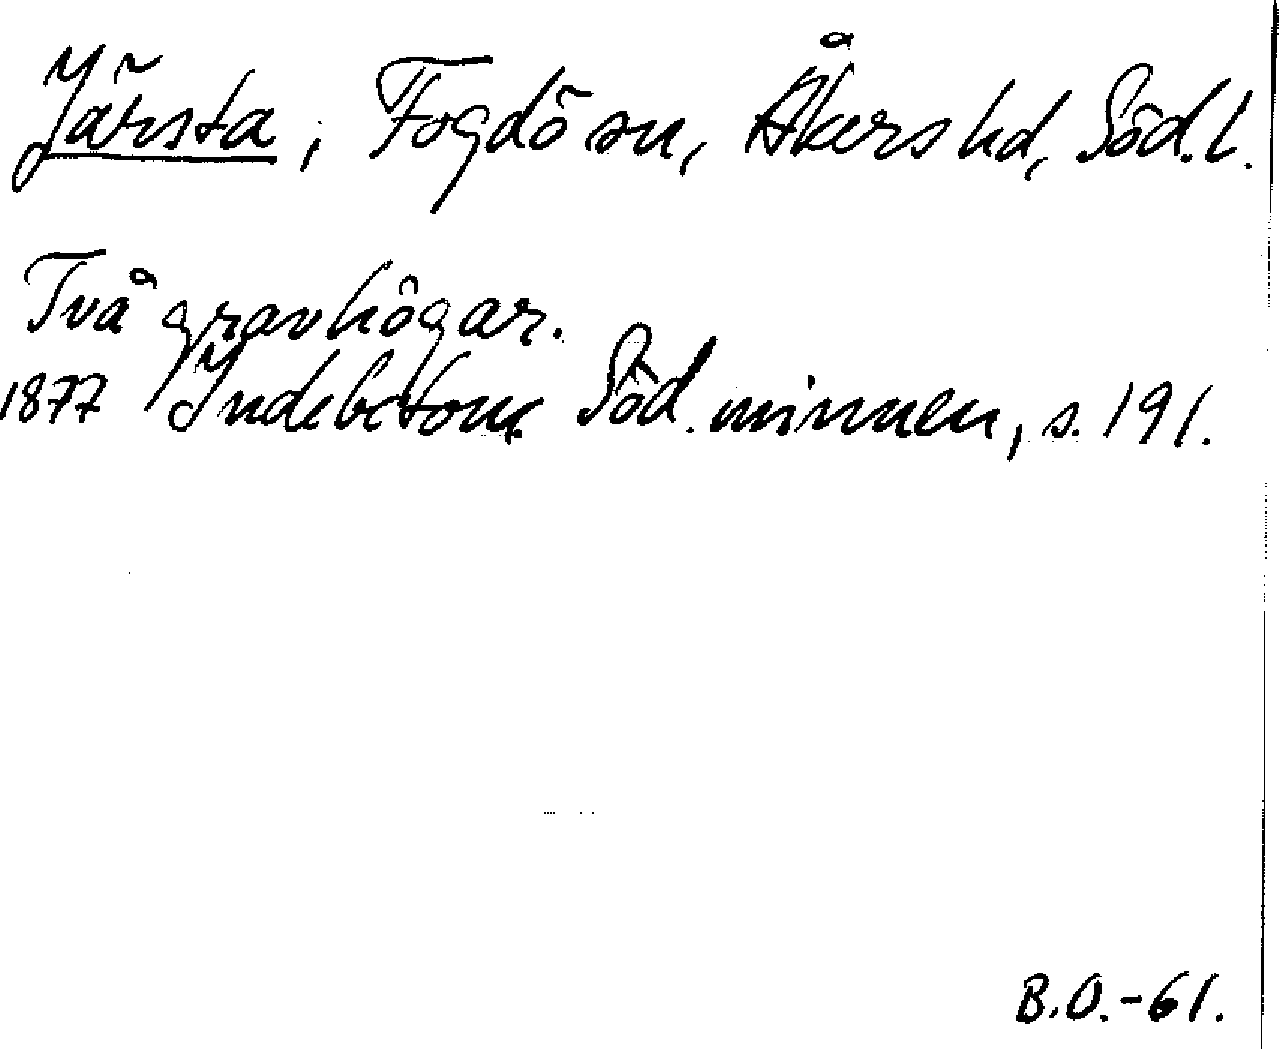 Järsta, Fogdö sn, Åkers hd, Söd.l.
Två gravhögar.
1877 Indebetou, Söd. minnen, s. 191.
B.O.-61.